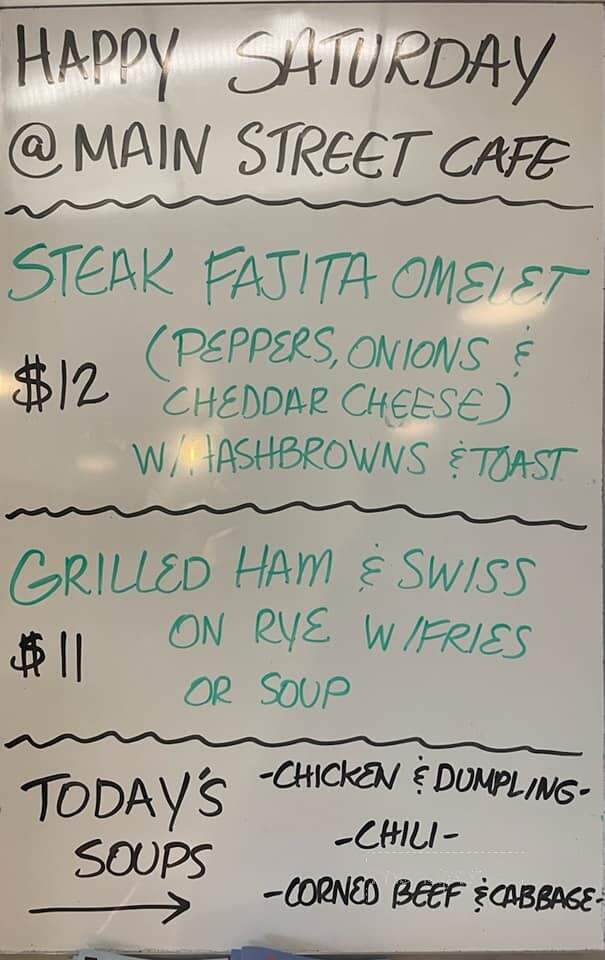 HAPPY SATURDAY
@ MAIN STREET CAFE
STEAK FAJITA OMELET
$12 (PEPPERS, ONIONS &
CHEDDAR CHEESE)
W/ HASHBROWNS & TOAST
GRILLED HAM & SWISS
$11 ON RYE W/FRIES
OR SOUP
TODAY'S SOUPS →
-CHICKEN & DUMPLING-
-CHILI-
-CORNED BEEF & CABBAGE-